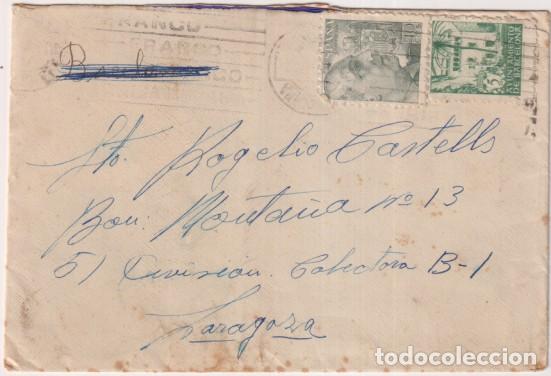 FRANCO
FRANCO
Sto. Rogelio Castells
Bon. Montaña nº 13
51 División. Colectora B-1
Zaragoza
todocoleccion